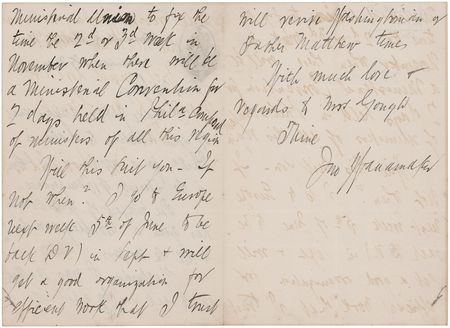 Ministerial Union to fix the
time the 2d or 3d week in
November when there will be
a Ministerial Convention for
2 days held in Phila composed
of ministers of all this region
Will this suit you - If
not when? I go to Europe
next week 5th of June to be
back (D V) in Sept & will
get a good organization for
efficient work that I trust
will revive Washingtonian or
Father Matthew times
With much love &
regards to Mrs Gough
Thine
Jno Wanamaker